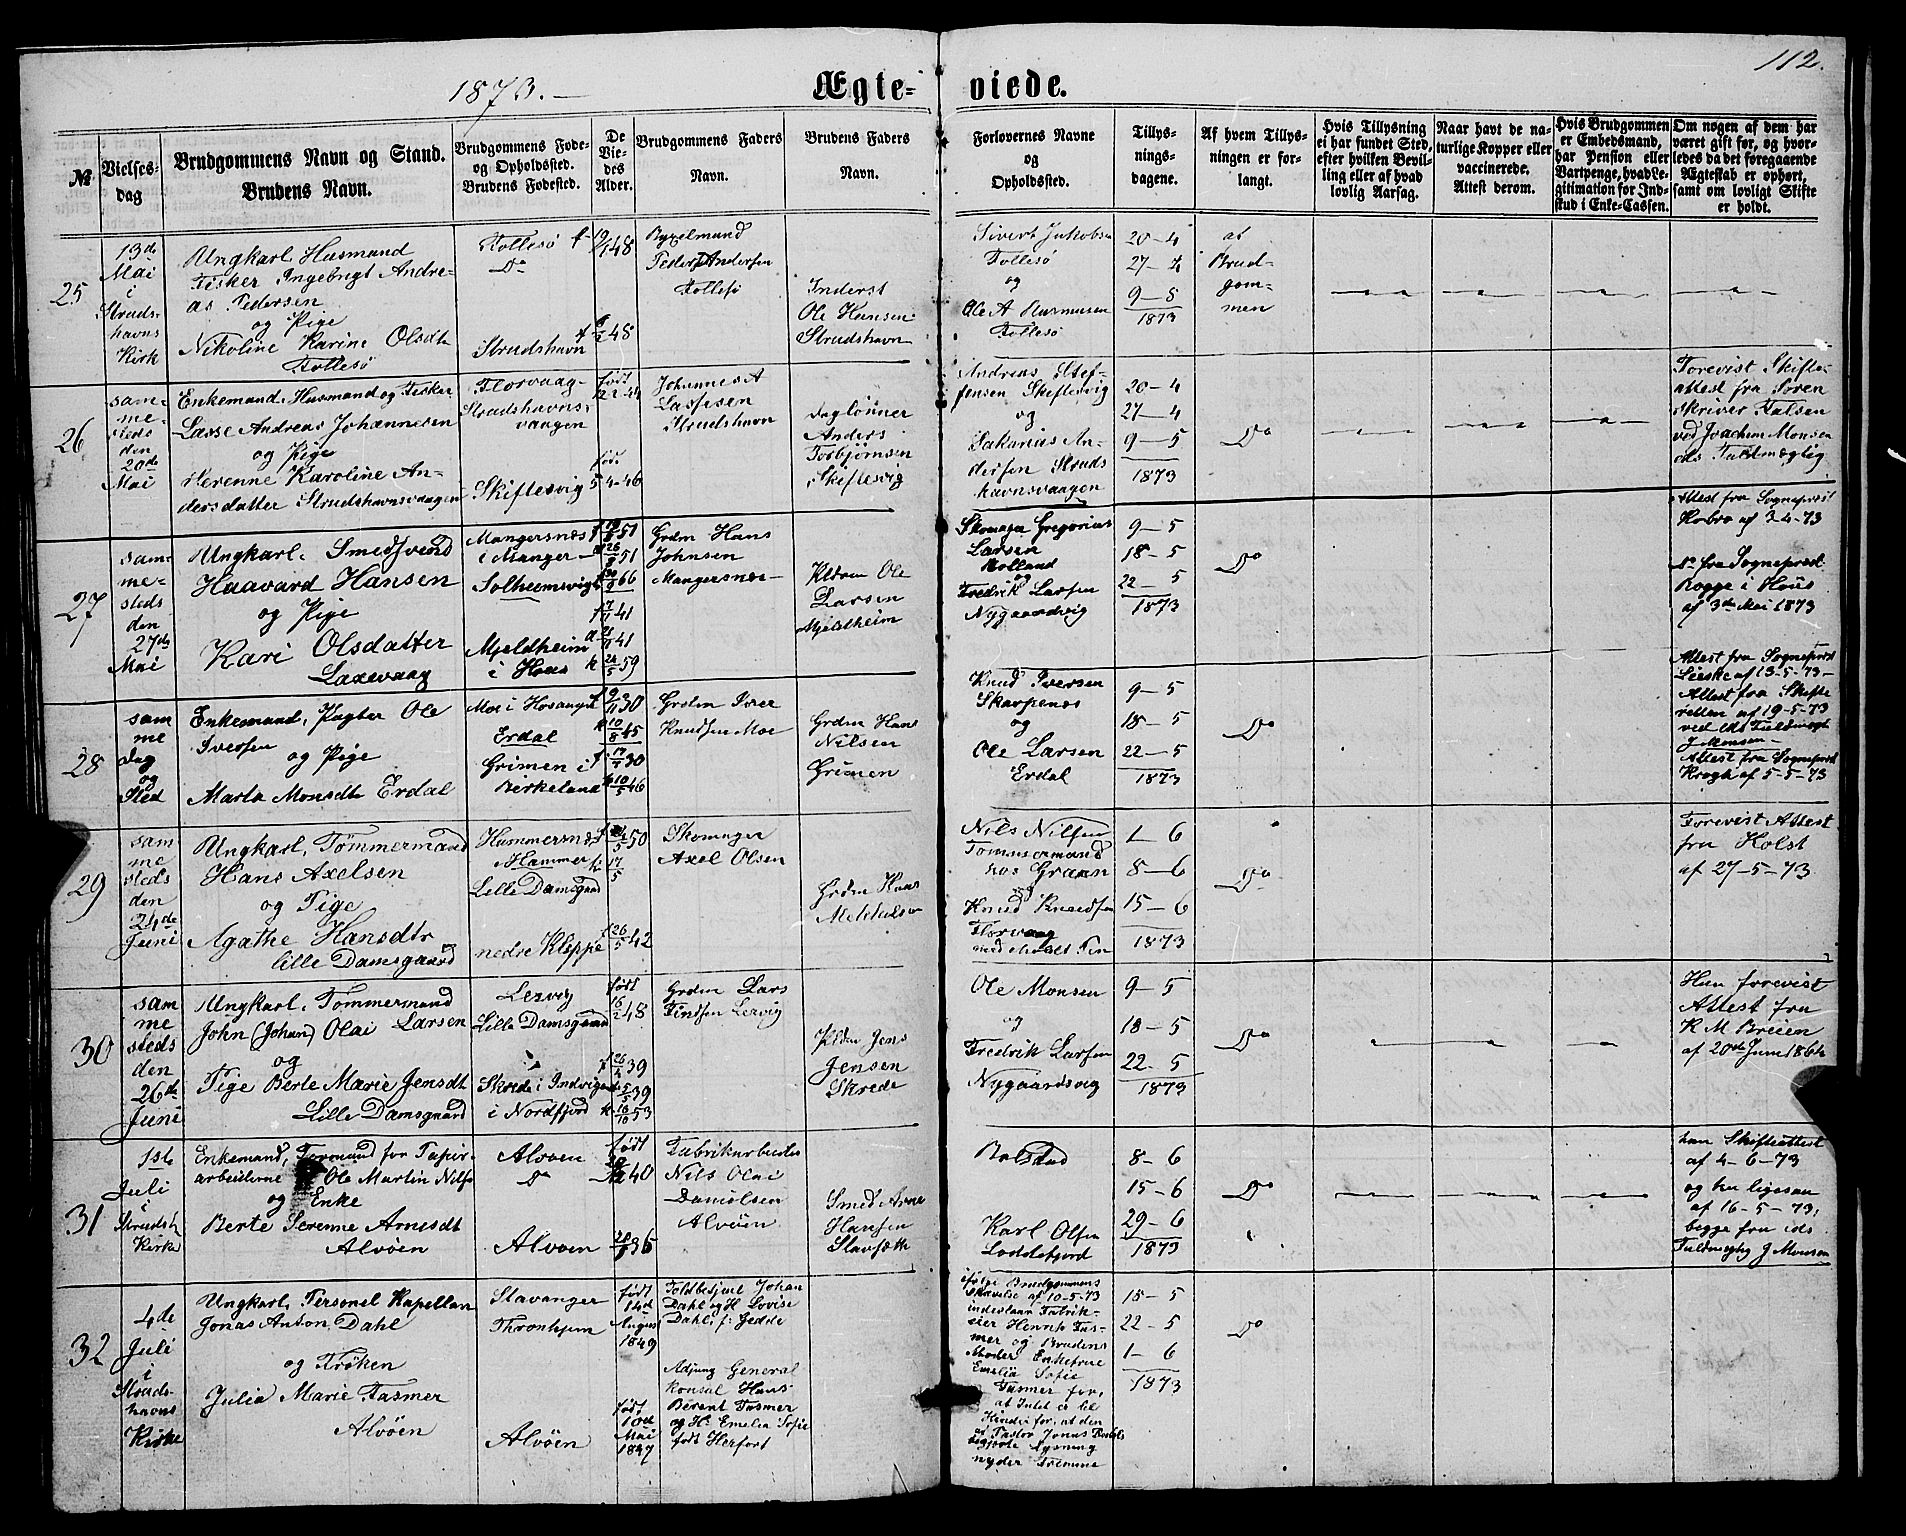 112.
1873. —
Ægte-
viede.
№
Vielses-
dag
Brudgommens Navn og Stand.
Brudens Navn.
Brudgommens Føde-
og Opholdssted.
Brudens Fødested.
De
Vie-
des
Alder.
Brudgommens Faders
Navn.
Brudens Faders
Navn.
Forlovernes Navne
og
Opholdssted.
Tillys-
nings-
dagene.
Af hvem Tillys-
ningen er for-
langt.
Hvis Tillysning
ei har fundet Sted,
efter hvilken Bevil-
ling eller af hvad
lovlig Aarsag.
Naar havt de na-
turlige Kopper eller
vaccinerede.
Attest derom.
Hvis Brudgommen
er Embedsmand,
har Pension eller
Vartpenge, hvad Le-
gitimation for Ind-
skud i Enke-Cassen.
Om nogen af dem har
været gift før, og hvor-
ledes da det foregaaende
Ægteskab er ophørt,
samt om lovligt Skifte
er holdt.
25
13de
Mai
i
Struds-
havns
Kirk
Ungkarl Husmand
Fisker Ingebrigt Andre-
as Pedersen
og Pige
Nikoline Karine Olsdt
Follesø
Follesø
Do
Strudshavn
48
48
Peder Andersen
Follesø
Inderst
Ole Hansen
Strudshavn
Sivert Jakobsen
Follesø
og
Ole A Rasmusen
Follesø
20-4
27-4
9-5
1873
af
Brud-
gom-
men
26
sam-
me-
steds
den
20de
Mai
Enkemand. Husmand og Fisker
Lasse Andreas Johannesen
og Pige
Serenne Karoline An-
dersdatter Strudshavnsvaagen
Florvaag
Strudshavns-
vaagen
Skiftesvig
født
født
5-4-46
Johannes A
Lassesen
Strudshavn
Daglønner
Anders
Torbjørnsen
Skiftesvig
Andreas Stef-
fensen Skiftesvig
og
Sakarias An-
dersen Struds
havnsvaagen
20-4
27-4
9-5
1873
Do
Forevist Skifte-
attest fra Soren
skriver Falsen
ved Joachim Monsen
Fuldmægtig
27
sam-
me-
steds
den
27de
Mai
Ungkarl. Smedsvend
Haavard Hansen
og Pige
Kari Olsdatter
Laxevaag
Mangersnes
i Manger
Solheimsvig
Mjeldheim
i Haus
51
51
66
41
41
59
Grdm Hans
Johnsen
Mangersnes
Ole
Larsen
Mjeldheim
Skomager Gregorius
Larsen
og
Fredrik Larsen
Nygaardsvig
9-5
18-5
22-5
1873
Do
Attest fra Sogneprest
af 3-4-73
Do fra Sogneprest
Rogge i Haus
af 3de Mai 1873
28
sam
me
dag
og
Sted
Enkemand, Pagter Ole
Iversen
og Pige
Marta Monsdt Erdal
Moe i Hosanger
Erdal
Grimen i
Birkeland
30
45
30
46
Grdm Iver
Knudsen Moe
Grdm Hans
Nilsen
Grimen
Knud Iversen
Skarpenes
og
Ole Larsen
Erdal
9-5
18-5
22-5
1873
Do
Attest fra Sogneprest
af 13-5-73
Attest fra Skifte
retten af 19-5-73
J Monsen
Attest fra Sogneprest
Krogh af 5-5-73
29
sam
me
steds
den
24de
Juni
Ungkarl, Tømmermand
Hans Axelsen
og Pige
Agathe Hansdtr
lille Damsgaard
Hammersnes
Hammer
Lille Damsgaard
nedre Kleppe
50
42
Skomager
Axel Olsen
Grdm Hans
Nils Nilsen
Tømmermand
hos Graan
og
Knud Knudsen
Florvaag
1-6
8-6
15-6
1873
Do
Forevist Attest
fra Holst
af 27-5-73
30
sam
me
steds
den
26de
Juni
Ungkarl. Tømmermand
John (Johan) Olai Larsen
og
Pige Berte Marie Jensdt
Lille Damsgaard
Lervig
Lille Damsgaard
Skrede i Indvigen
i Nordfjord
født
48
39
39
53
Grdm Lars
Findsen Lervig
Jens
Jensen
Skrede
Ole Monsen
og
Fredrik Larsen
Nygaardsvig
9-5
18-5
22-5
1873
Do
Hun forevist
Attest fra
K M Breien
af 20de Juni
31
1ste
Juli
i
Strudsh
Kirke
Enkemand, Formand for Papir-
arbeiderne Ole Martin Nilsen
og Enke
Berte Serenne Arnesdt
Alvøen
Alvøen
Do
Alvøen
født
40
36
Fabrikarbeider
Nils Olai
Danielsen
Alvøen
Smed Arne
Hansen
Karl Olsen
Loddefjord
8-6
15-6
29-6
1873
Do
han Skifteattest
af 4-6-73
og hun ligesaa
af 16-5-73,
begge fra
Fuldmægtig J Monsen
32
4de
Juli
i
Struds-
havns
Kirke
Ungkarl, Personel Kapellan
Jonas Anton Dahl
og Frøken
Julia Marie Fasmer
Alvøen
Stavanger
Thronhjem
Alvøen
født
14d
August
1849
født
10d
Mai
1847
Toldbetjent Johan
Dahl og H Lovise
Dahl f: Gedde
Adjung General
konsul Hans
Berent Fasmer
og H. Emelia Sofie
født Herfort
ifølge Brudgommens
skrivelse af 10-5-73
indestaar Fabrik-
eier Henrik Fas-
mer og Brudens
Moder Enkefrue
Emelia Sofie
Fasmer for,
at Intet er til
Hinder for, at den
af Pastor Jonas
begjærte Lysning
nyder Fremme
18-5
22-5
1-6
1873
Do